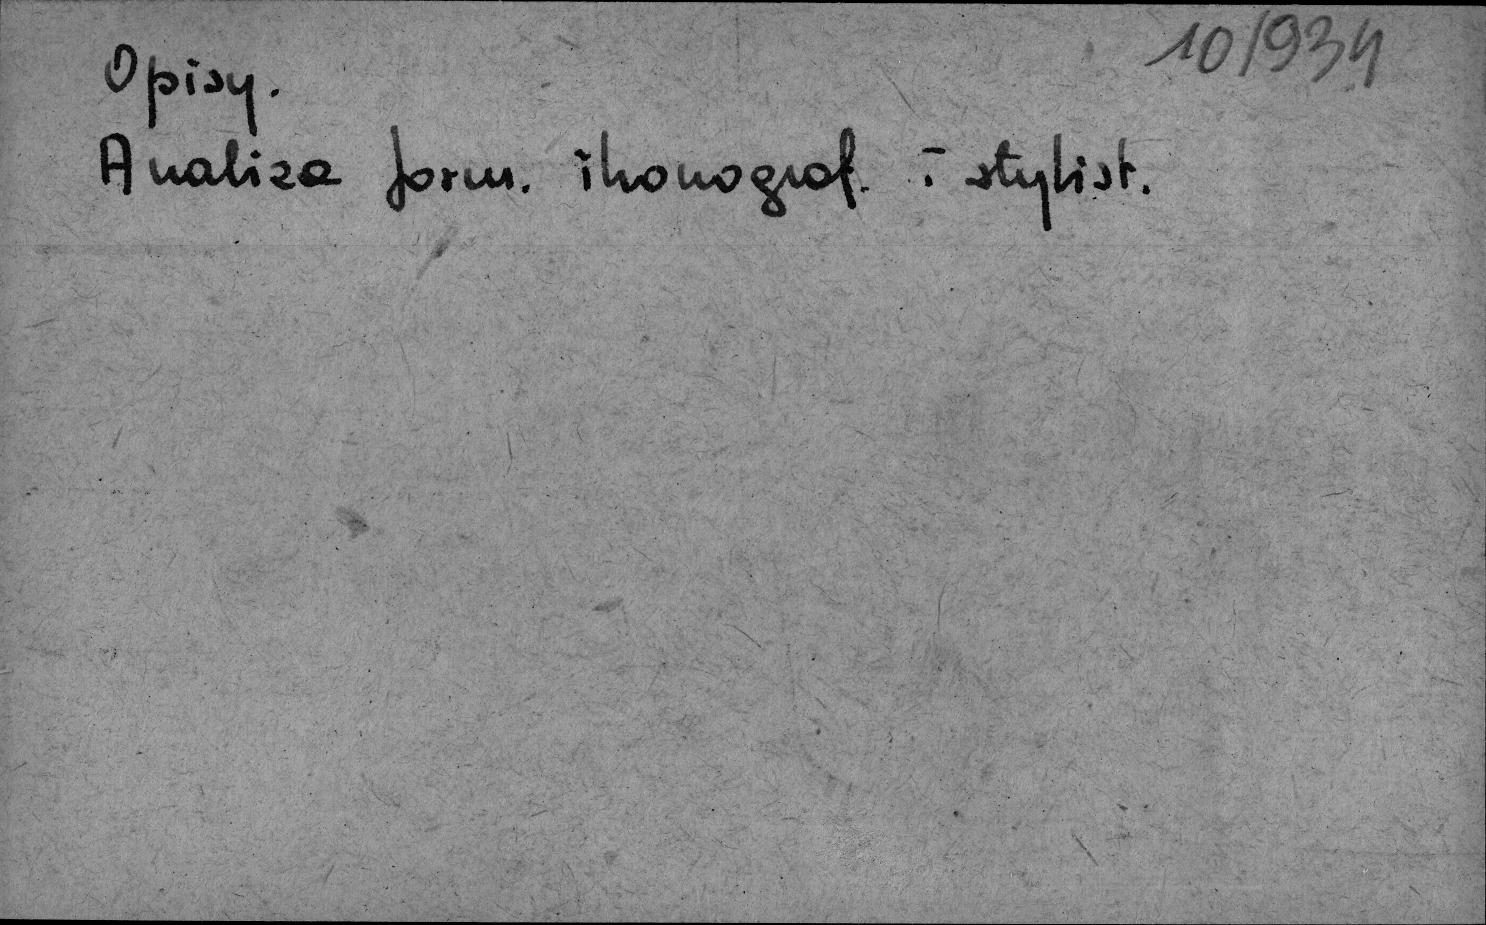 10/934
Opisy.
Analiza form. ikonograf. i stylist.